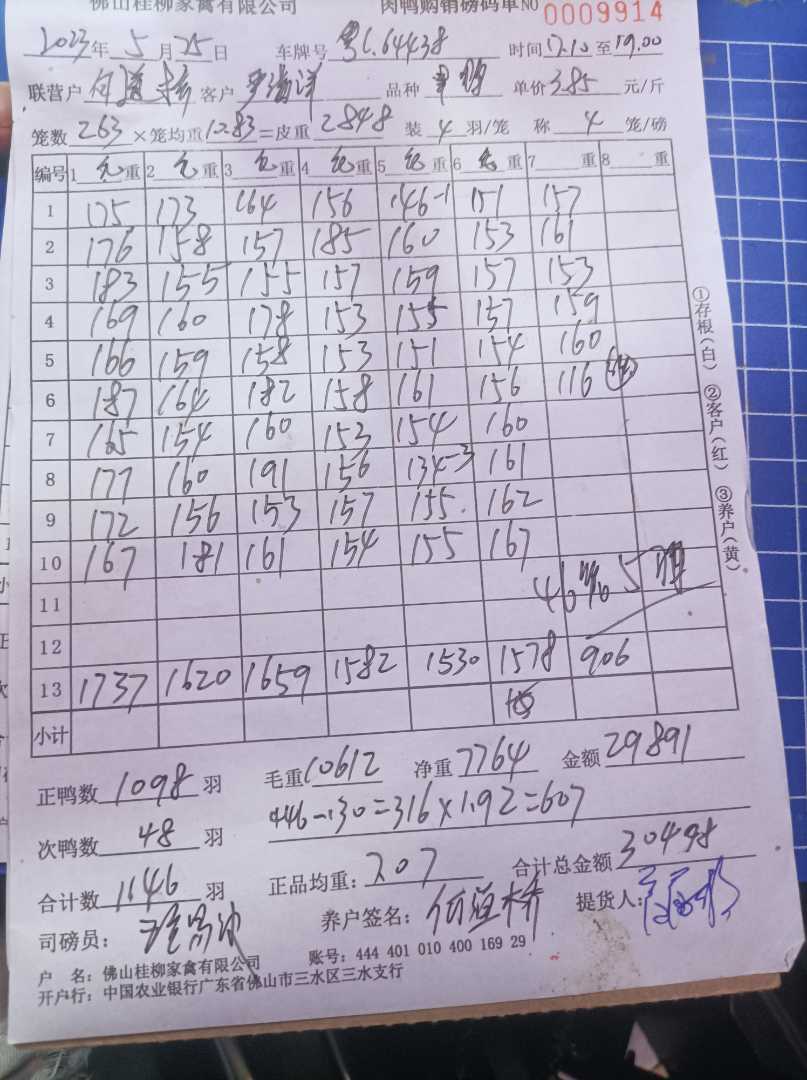 佛山桂柳家禽有限公司 肉鸭购销磅码单 NO 0009914
2023年 5月 25日 车牌号 粤C.64438 时间 17.10 至 19.00
联营户 客户 尹海洋 品种 单价 3.85 元/斤
笼数 263 ×笼均重 10.83 =皮重 2848 装 4 羽/笼 称 4 笼/磅
编号 1 毛重 2 毛重 3 毛重 4 毛重 5 毛重 6 毛重 7 重 8 重
1 175 173 164 156 146-1 151 157
2 176 158 157 185 160 153 161
3 183 155 155 157 159 157 153
4 169 160 178 153 155 157 159
5 166 159 158 153 151 154 160
6 187 164 182 158 161 156 116
7 165 154 160 153 154 160
8 177 160 191 156 134-3 161
9 172 156 153 157 155. 162
10 167 181 161 154 155 167
11
12
13 1737 1620 1659 1582 1530 1578 906
小计
正鸭数 1098 羽 毛重 10612 净重 7764 金额 29891
次鸭数 48 羽 446-130=316×1.92=607
合计数 1146 羽 正品均重: 7.07 合计总金额 30498
司磅员: 养户签名: 提货人:
户 名: 佛山桂柳家禽有限公司 账号: 444 401 010 400 169 29
开户行: 中国农业银行广东省佛山市三水区三水支行
①存根(白) ②客户(红) ③养户(黄)